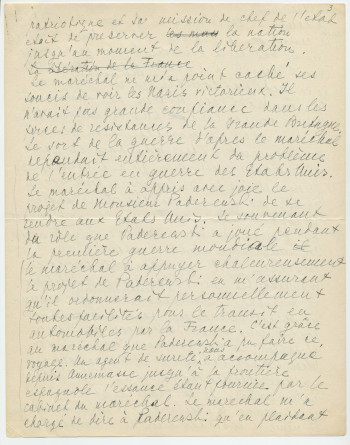 patriotique et sa mission de chef de l'état
était de préserver les mus la nation
jusqu'au moment de la liberation.
La libération de la France
Le marechal ne m'a point caché ses
soucis de voir les Nazis victorieux. Il
n'avait pas grande confiance dans les
forces de resistances de la Grande Bretagne.
Le sort de la guerre d'apres le maréchal
dependait entièrement du problème
de l'entrée en guerre des Etats Unis.
Le maréchal a appris avec joie le
projet de Monsieur Paderewski de se
rendre aux Etats Unis. Se souvenant
du rôle que Paderewski a joué pendant
la première guerre mondiale et
le maréchal a appuyer chaleureusement
le projet de Paderewski en m'assurant
qu'il ordonnerait personnellement
toutes facilités pour le transit en
automobiles par la France. C'est grâce
au maréchal que Paderewski a pu faire ce
voyage. Un agent de sureté nous a accompagné
depuis Annemasse jusqu'à la frontière
espagnole l'essence étant fournie par le
cabinet du maréchal. Le marechal m'a
chargé de dire à Paderewski qu'en plaidant